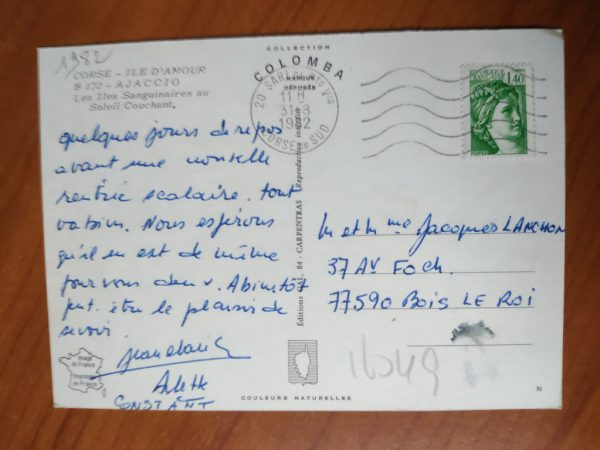 1982
COLLECTION
COLOMBA
MARQUE
DÉPOSÉE
CORSE - ILE D'AMOUR
B 172 - AJACCIO
Les Iles Sanguinaires au
Soleil Couchant.
quelques jours de repos
avant une nouvelle
rentrée scolaire. tout
va bien. Nous espérons
qu'il en est de même
pour vous deux. A bientôt
peut. être le plaisir de
se voir
Jean Claude
Arlette
CONSTANT
Image
de France
Imprimée
en France
Editions 84 - CARPENTRAS Reproduction interdite
COULEURS NATURELLES
20
11 H
31-8
1982
CORSE DU SUD
1,40
POSTES
M et Mme Jacques LANCHON
37 AV FOCH.
77590 BOIS LE ROI
N